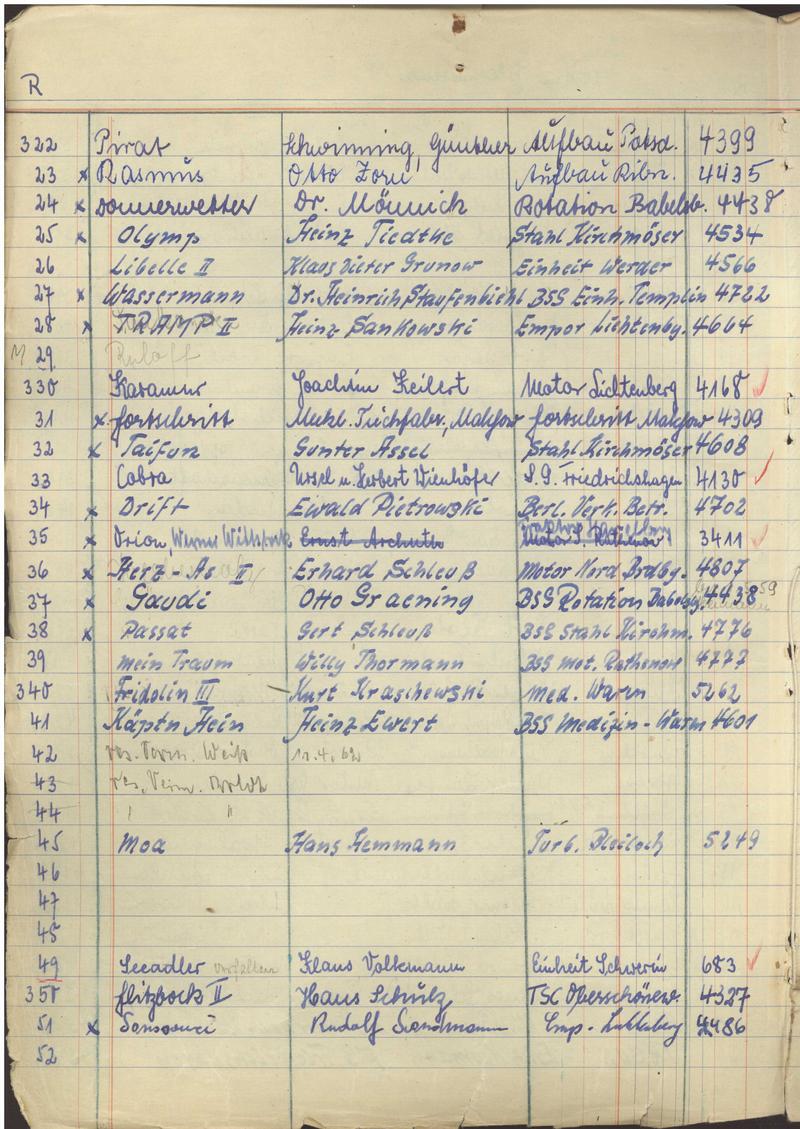 R
322 Pirat Schwinning, Günther Aufbau Potsd. 4399
23 x Rasmus Otto Zorn Aufbau Ribn. 4435
24 x Donnerwetter Dr. Mönnick Rotation Babelsb. 4438
25 x Olymp Heinz Tiedtke Stahl Kirchmöser 4534
26 Libelle II Klaus Dieter Grunow Einheit Werder 4566
27 x Wassermann Dr. Heinrich Staufenbiehl BSG Einh. Templin 4722
28 x TRAMP II Heinz Sankowski Empor Lichtenbg. 4664
M 29 Ruloff
330 Karamur Joachim Keilert Motor Lichtenberg 4168
31 x Fortschritt Meckl. Tuchfabr., Malchow Fortschritt Malchow 4309
32 x Taifun Gunter Assel Stahl Kirchmöser 4608
33 Cobra Ursel u. Herbert Wienhöfer S.G. Friedrichshagen 4130
34 x Drift Ewald Pietrowski Berl. Verk. Betr. 4702
35 x Orion, Werner 3411
36 x Herz-As II Erhard Schleuß Motor Nord Brdbg. 4807
37 x Gaudi Otto Graening BSG Rotation Babelsbg. 4438 59
38 x Passat Gert Schleuß BSG Stahl Kirchm. 4776
39 mein Traum Willy Thormann BSG Mot. Rathenow 4777
340 Fridolin III Kurt Kraschewski Med. Warm 5262
41 Käptn Hein Heinz Ewert BSG Medizin-Warm 4601
42 res. Verm. Weiß 11.4.62
43 res. Verm.
44 " "
45 Moa Hans Hemmann Turb. Bleiloch 5249
46
47
48
49 Seeadler verfallen Klaus Volkmann Einheit Schwerin 683
350 Flitzbock II Hans Schulz TSC Oberschönew. 4327
51 x Sanssouci Rudolf Sandmann Emp. 4486
52